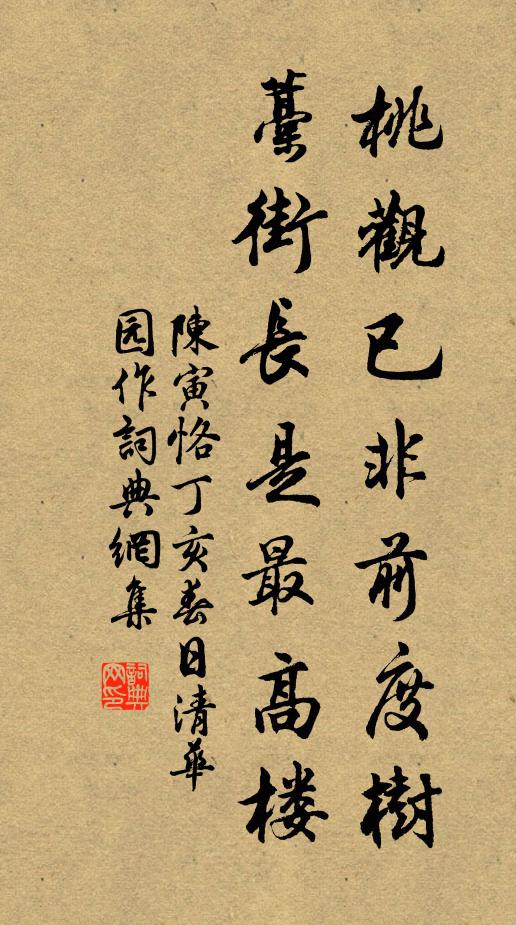 桃觀已非前度樹
藁街長是最高楼
陳寅恪丁亥春日清華
园作詞典網集
詞典
网印